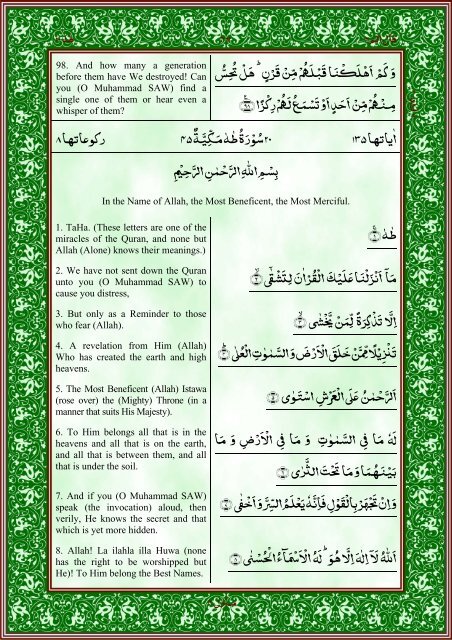 98. And how many a generation
before them have We destroyed! Can
you (O Muhammad SAW) find a
single one of them or hear even a
whisper of them?
وَكَمْ اَهْلَكْنَا قَبْلَهُمْ مِّنْ قَرْنٍ ؕ هَلْ تُحِسُّ
مِنْهُمْ مِّنْ اَحَدٍ اَوْ تَسْمَعُ لَهُمْ رِكْزًا ﴿۹۸﴾
اٰیاتھا ۱۳۵
۲۰ سُوْرَةُ طٰهٰ مَكِّيَّةٌ ۴۵
رکوعاتھا ۸
بِسْمِ اللّٰهِ الرَّحْمٰنِ الرَّحِيْمِ
In the Name of Allah, the Most Beneficent, the Most Merciful.
1. TaHa. (These letters are one of the
miracles of the Quran, and none but
Allah (Alone) knows their meanings.)
طٰهٰ ﴿۱﴾
2. We have not sent down the Quran
unto you (O Muhammad SAW) to
cause you distress,
مَاۤ اَنْزَلْنَا عَلَيْكَ الْقُرْاٰنَ لِتَشْقٰٓى ﴿۲﴾
3. But only as a Reminder to those
who fear (Allah).
اِلَّا تَذْكِرَةً لِّمَنْ يَّخْشٰى ﴿۳﴾
4. A revelation from Him (Allah)
Who has created the earth and high
heavens.
تَنْزِيْلًا مِّمَّنْ خَلَقَ الْاَرْضَ وَ السَّمٰوٰتِ الْعُلٰى ﴿۴﴾
5. The Most Beneficent (Allah) Istawa
(rose over) the (Mighty) Throne (in a
manner that suits His Majesty).
اَلرَّحْمٰنُ عَلَى الْعَرْشِ اسْتَوٰى ﴿۵﴾
6. To Him belongs all that is in the
heavens and all that is on the earth,
and all that is between them, and all
that is under the soil.
لَهٗ مَا فِى السَّمٰوٰتِ وَ مَا فِى الْاَرْضِ وَ مَا
بَيْنَهُمَا وَ مَا تَحْتَ الثَّرٰى ﴿۶﴾
7. And if you (O Muhammad SAW)
speak (the invocation) aloud, then
verily, He knows the secret and that
which is yet more hidden.
وَ اِنْ تَجْهَرْ بِالْقَوْلِ فَاِنَّهٗ يَعْلَمُ السِّرَّ وَ اَخْفٰى ﴿۷﴾
8. Allah! La ilahla illa Huwa (none
has the right to be worshipped but
He)! To Him belong the Best Names.
اَللّٰهُ لَاۤ اِلٰهَ اِلَّا هُوَ ؕ لَهُ الْاَسْمَآءُ الْحُسْنٰى ﴿۸﴾